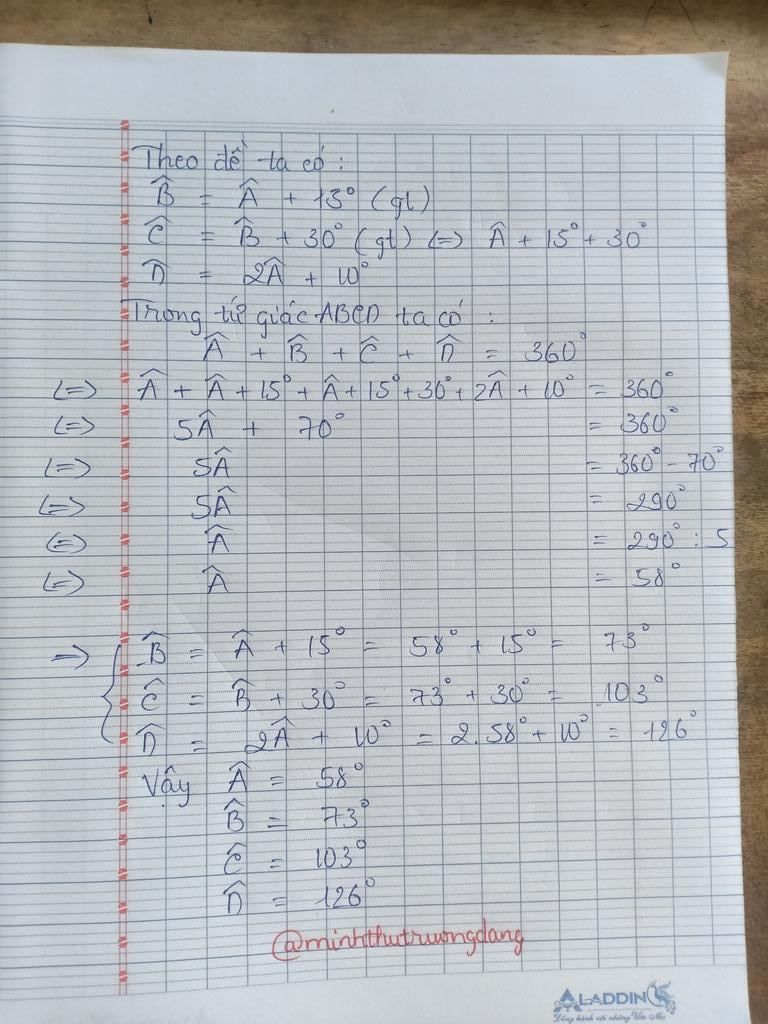 Theo đề ta có :
B̂ = Â + 15° (gt)
Ĉ = B̂ + 30° (gt) <=> Â + 15° + 30°
D̂ = 2Â + 10°
Trong tứ giác ABCD ta có :
Â + B̂ + Ĉ + D̂ = 360°
<=> Â + Â + 15° + Â + 15° + 30° + 2Â + 10° = 360°
<=> 5Â + 70° = 360°
<=> 5Â = 360° - 70°
<=> 5Â = 290°
<=> Â = 290° : 5
<=> Â = 58°
=> { B̂ = Â + 15° = 58° + 15° = 73°
Ĉ = B̂ + 30° = 73° + 30° = 103°
D̂ = 2Â + 10° = 2.58° + 10° = 126°
Vậy Â = 58°
B̂ = 73°
Ĉ = 103°
D̂ = 126°
@minhthutruongdang
ALADDIN
Đồng hành với những Ước Mơ